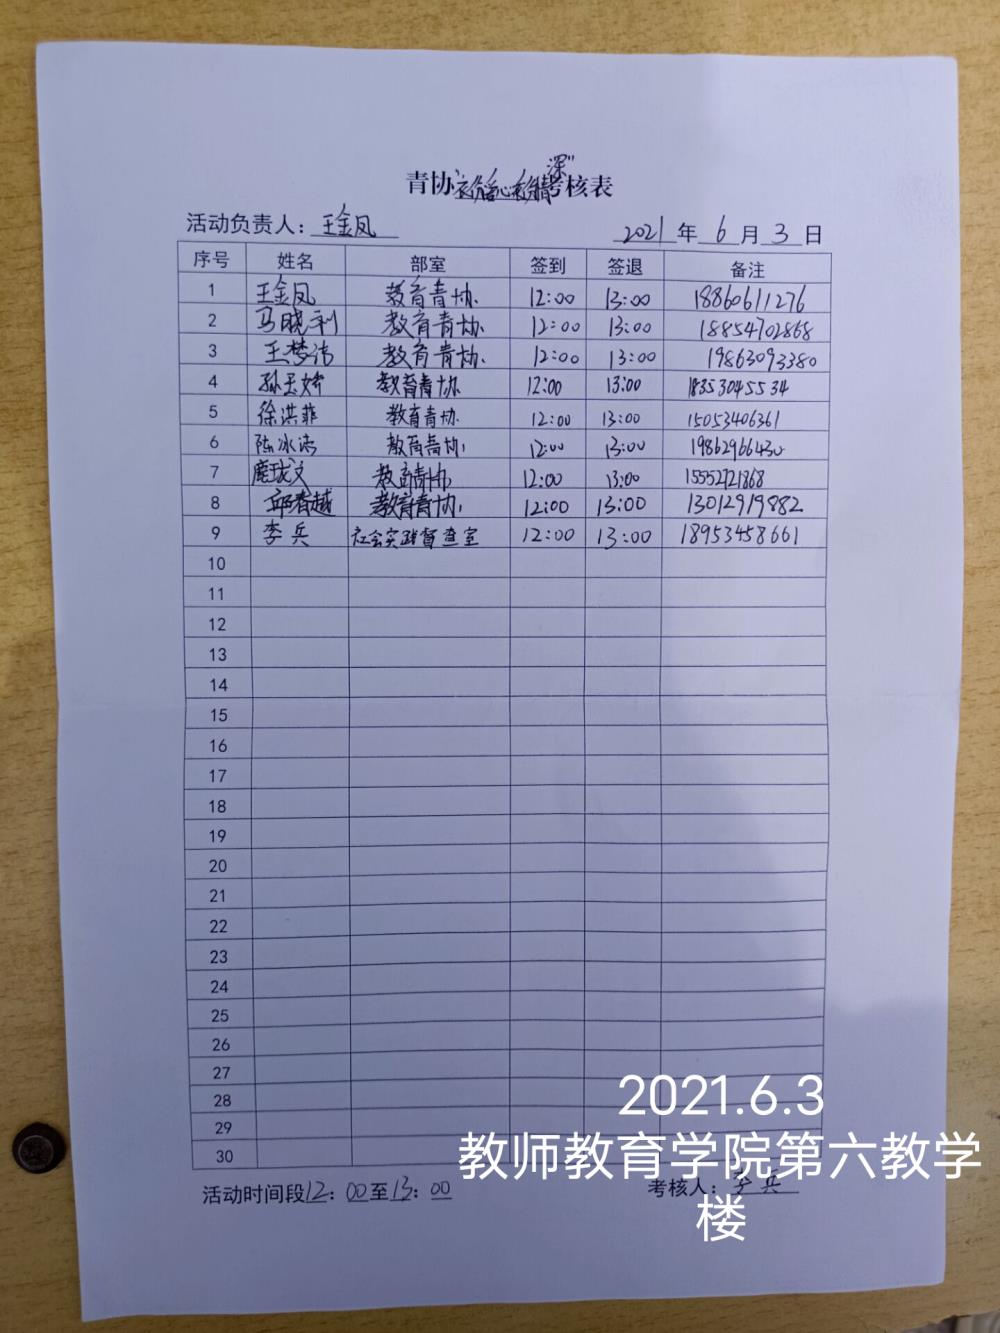 青协"衣份爱心衣份情深"考核表
活动负责人：王金凤 2021年6月3日
序号 姓名 部室 签到 签退 备注
1 王金凤 教育青协 12:00 13:00 18860611276
2 马晓利 教育青协 12:00 13:00 18854702868
3 王梦洁 教育青协 12:00 13:00 19863093380
4 孙玉婷 教育青协 12:00 13:00 18353045534
5 徐洪菲 教育青协 12:00 13:00 15053406361
6 陈冰洁 教育青协 12:00 13:00 19862966430
7 鹿文 教育青协 12:00 13:00 15552721868
8 邱春越 教育青协 12:00 13:00 13012919882
9 李兵 社会实践督查室 12:00 13:00 18953458661
10
11
12
13
14
15
16
17
18
19
20
21
22
23
24
25
26
27
28
29
30
活动时间段12：00至13：00 考核人：李兵
2021.6.3
教师教育学院第六教学
楼